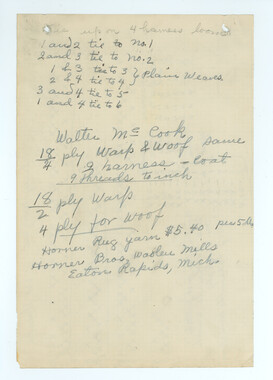 Tie up on 4 harness loom
1 and 2 tie to no. 1
2 and 3 tie to no. 2
1 & 3 tie to 3 } Plain Weave
2 & 4 tie to 4
3 and 4 tie to 5
1 and 4 tie to 6
Walter Mc Cook
18/4 ply Warp & Woof same
2 harness - Coat
9 threads to inch
18/2 ply Warp
4 ply for Woof
Horner Rug yarn $5.40 per 5 lb
Horner Bros. Woolen Mills
Eaton Rapids, Mich